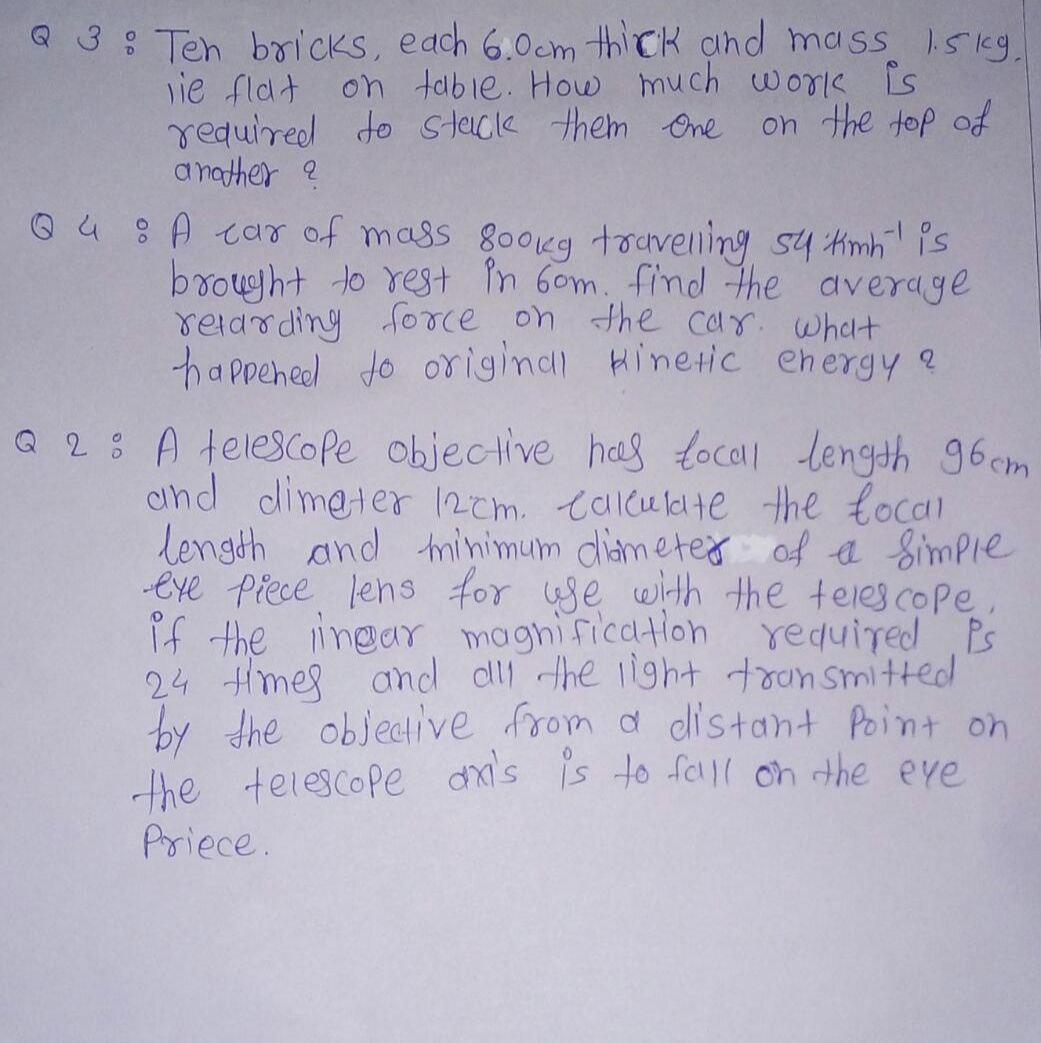 Q 3 : Ten bricks, each 6.0cm thick and mass 1.5 kg.
lie flat on table. How much work is
required to stack them one on the top of
another ?
Q 4 : A car of mass 800kg travelling 54 kmh⁻¹ is
brought to rest in 60m. find the average
retarding force on the car. what
happened to original kinetic energy ?
Q 2 : A telescope objective has focal length 96cm
and dimeter 12cm. calculate the focal
length and minimum diameter of a simple
eye piece lens for use with the telescope,
if the linear magnification required is
24 times and all the light transmitted
by the objective from a distant point on
the telescope axis is to fall on the eye
Priece.